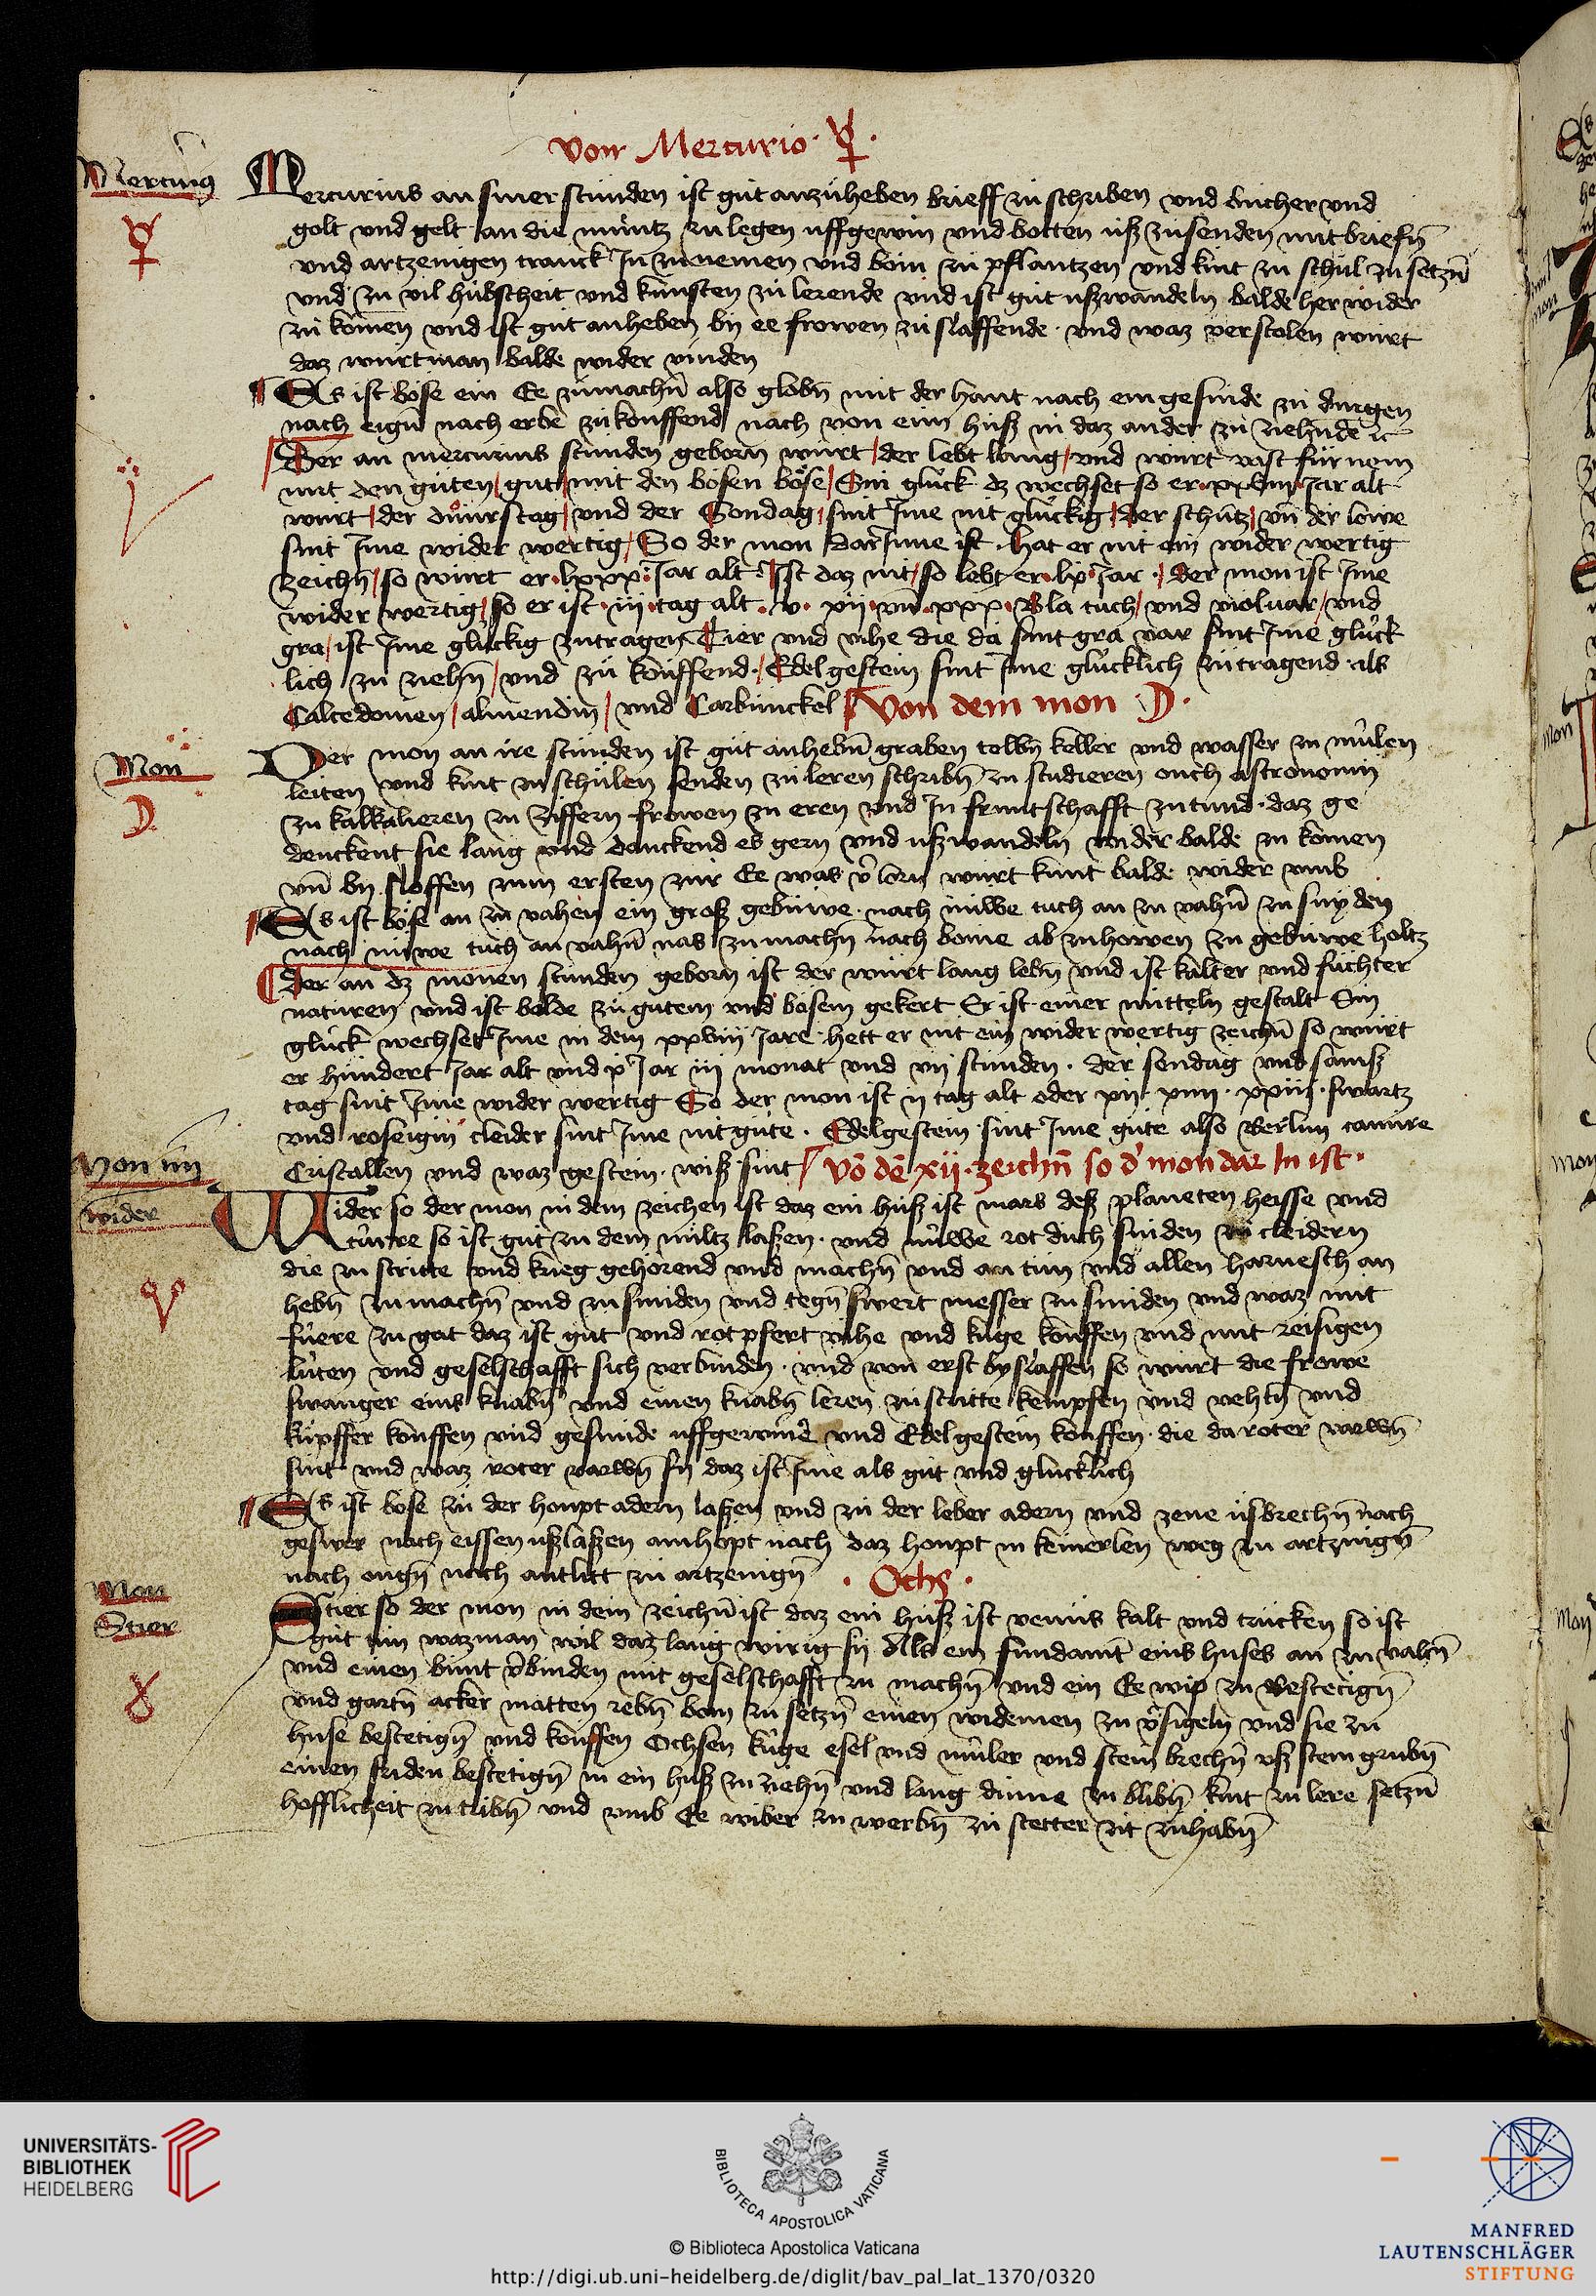 Von Mercurio ☿
Mercurius
☿
Mercurius an siner stunden ist gůt an zů heben brieff zů schriben vnd bůcher vnd
golt vnd gelt an die müntz zů legen vff gewin vnd botten uß zů senden mit briefn̄
vnd artzenigen tranck In zů nemen vnd boim zů pflantzen vnd kint zů schůl zů setzn̄
vnd zů vil hübscheit vnd künsten zů lerende vnd ist gůt uß wandeln balde her wider
zů komen vnd ist gůt anheben by ee frowen zů slaffende vnd waz verstolen würt
daz würt man balde wider vinden
Es ist böse ein Ee zů machn̄ also globn̄ mit der hant nach ein gesinde zů dingen
nach eign̄ nach erbe zů kouffend nach von eim huß in daz ander zů ziehnde
Der an mercurius stunden geborn würt der lebt lang vnd würt vast für nem
mit den gůten gůt mit den bösen böse Sin glück dz wechset so er xxviij Jar alt
würt der dunrstag vnd der Sondag sint Ime nit glückig der schütz vn̄ der lowe
sint Ime wider wertig So der mon dar Inne ist hat er nit ein wider wertig
zeichn̄ so würt er lxxx Jar alt Ist daz nit so lebt er lx Jar der mon ist Ime
wider wertig so er ist iij tag alt v xij vn̄ xxx Bla tůch vnd violuar vnd
gra ist Ime glückig zů tragen Tier vnd vihe die da sint gra var sint Ime glück
lich zů ziehn̄ vnd zů kouffend Edel gestein sint Ime glücklich zů tragend als
Calcedonien almendin vnd Carbunckel Von dem mon ☽
Mon
☽
Der mon an ire stunden ist gůt anhebn̄ graben tolbn̄ keller vnd wasser zů můlen
leiten vnd kint zů schůlen senden zů leren schribn̄ zů studieren ouch astronomin
zů kalkalieren zů ziffern frowen zů eren vnd In fruntschafft zů tůnd daz ge
denckent sie lang vnd denckend es gern vnd uß wandeln wider balde zů komen
vn̄ by sloffen zům ersten zůr Ee was v̄lorn würt kunt balde wider vmb
Es ist böse an zů vahen ein groß gebüwe nach nüwe tůch an zů vahn̄ zů snyden
nach nüwe tůch an vahn̄ nas zů machn̄ nach boime ab zů howen zů gebüwe holtz
der an dz monen stunden geborn ist der würt lang lebn̄ vnd ist kalter vnd füchter
naturen vnd ist balde zů gutem vnd bösem gekert Er ist einer mitteln gestalt Sin
glück wechset Ime in dem xxviij Jare hett er nit ein wider wertig zeichn̄ so würt
er hundert Jar alt vnd x Jar iij monat vnd vij stunden der sondag vnd samß
tag sint Ime wider wertig So der mon ist ij tag alt oder xij xiiij xxiiij swartz
vnd cleider sint Ime nit gůte Edelgestein sint Ime gůte also Berlin
Cristallen vnd waz gestein wiß sint Vō dē xij zeichn̄ so d' mon dar In ist
Mon im
wider
♈
Wider so der mon in dem zeichen ist daz ein huß ist mars deß planeten heisse vnd
türre so ist gůt zů dem miltz laßen vnd nüwe rot důch sniden zů cleidern
die zů stritte vnd krieg gehorend vnd machn̄ vnd an tůn vnd allen harnesch an
hebn̄ zů machn̄ vnd zů smiden vnd tegn̄ swert messer zů smiden vnd waz mit
füere zů gat daz ist gůt vnd rot pfert vihe vnd küge kouffen vnd mit reisigen
lüten vnd geselschafft sich verbinden vnd von erst by slaffen so würt die frowe
swanger eins knabn̄ vnd einen knabn̄ leren zů stritte kempfen vnd vehtn̄ vnd
kupffer kouffen vnd gesinde vff gewinē vnd Edel gestein kouffen die da roter varwn̄
sint vnd waz roter varwn̄ sy daz ist Ime als gůt vnd glücklich
Es ist böse zů der houpt adern laßen vnd zů der leber adern vnd zene usbrechn̄ nach
geswer nach eissen uß laßen am hopt nach daz houpt in keinerlen weg zů artznign̄
nach ougn̄ nach antlitt zů artzenign̄ Ochs
Mon
Stier
♉
Stier so der mon in dem zeichn̄ ist daz ein huß ist venus kalt vnd trücken so ist
gůt tůn waz man wil daz lang wirig sy Als ein fundamt̄ eins huses an zů vahn̄
vnd einen bunt v̄binden mit geselschafft zů machn̄ vnd ein Ee wip zů Bestetign̄
vnd gartn̄ acker matten rebn̄ bom zů setzn̄ einen widemen zů v̄sigeln vnd sie zů
huse bestetign̄ vnd kouffen Ochsen küge esel vnd müler vnd stein brechn̄ uß stein grubn̄
einen friden bestetign̄ in ein huß zů ziehn̄ vnd lang dinne zů blibn̄ kint zů lere setzn̄
hofflicheit zů tribn̄ vnd vmb Ee wiber zů werbn̄ zů stetter zit zů habn̄
UNIVERSITÄTS-
BIBLIOTHEK
HEIDELBERG
BIBLIOTECA APOSTOLICA VATICANA
© Biblioteca Apostolica Vaticana
http://digi.ub.uni-heidelberg.de/diglit/bav_pal_lat_1370/0320
MANFRED
LAUTENSCHLÄGER
STIFTUNG